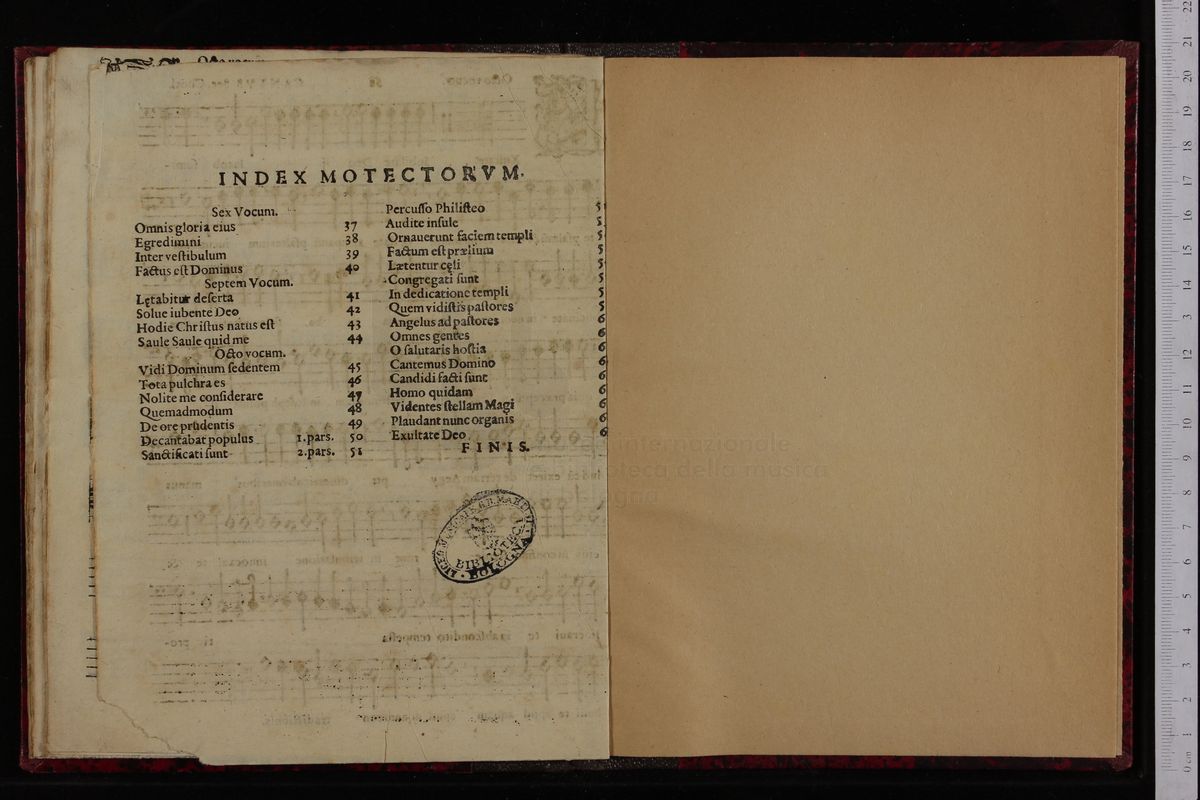 INDEX MOTECTORVM.
Sex Vocum.
Omnis gloria eius 37
Egredimini 38
Inter vestibulum 39
Factus est Dominus 40
Septem Vocum.
Lętabitur deserta 41
Solue iubente Deo 42
Hodie Christus natus est 43
Saule Saule quid me 44
Octo vocum.
Vidi Dominum sedentem 45
Tota pulchra es 46
Nolite me considerare 47
Quemadmodum 48
De ore prudentis 49
Decantabat populus 1.pars. 50
Sanctificati sunt 2.pars. 51
Percusso Philisteo 5
Audite insule 5
Ornauerunt faciem templi 5
Factum est prælium 5
Lætentur cęli 5
Congregati sunt 5
In dedicatione templi 5
Quem vidistis pastores 5
Angelus ad pastores 6
Omnes gentes 6
O salutaris hostia 6
Cantemus Domino 6
Candidi facti sunt 6
Homo quidam 6
Videntes stellam Magi 6
Plaudant nunc organis 6
Exultate Deo 6
FINIS.
BIBLIOTECA
BOLOGNA
internazionale
della musica